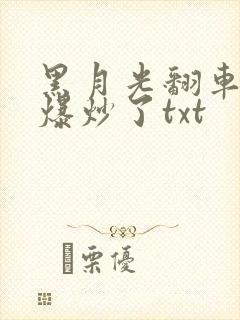 黑月光翻車
爆炒了txt
栗優